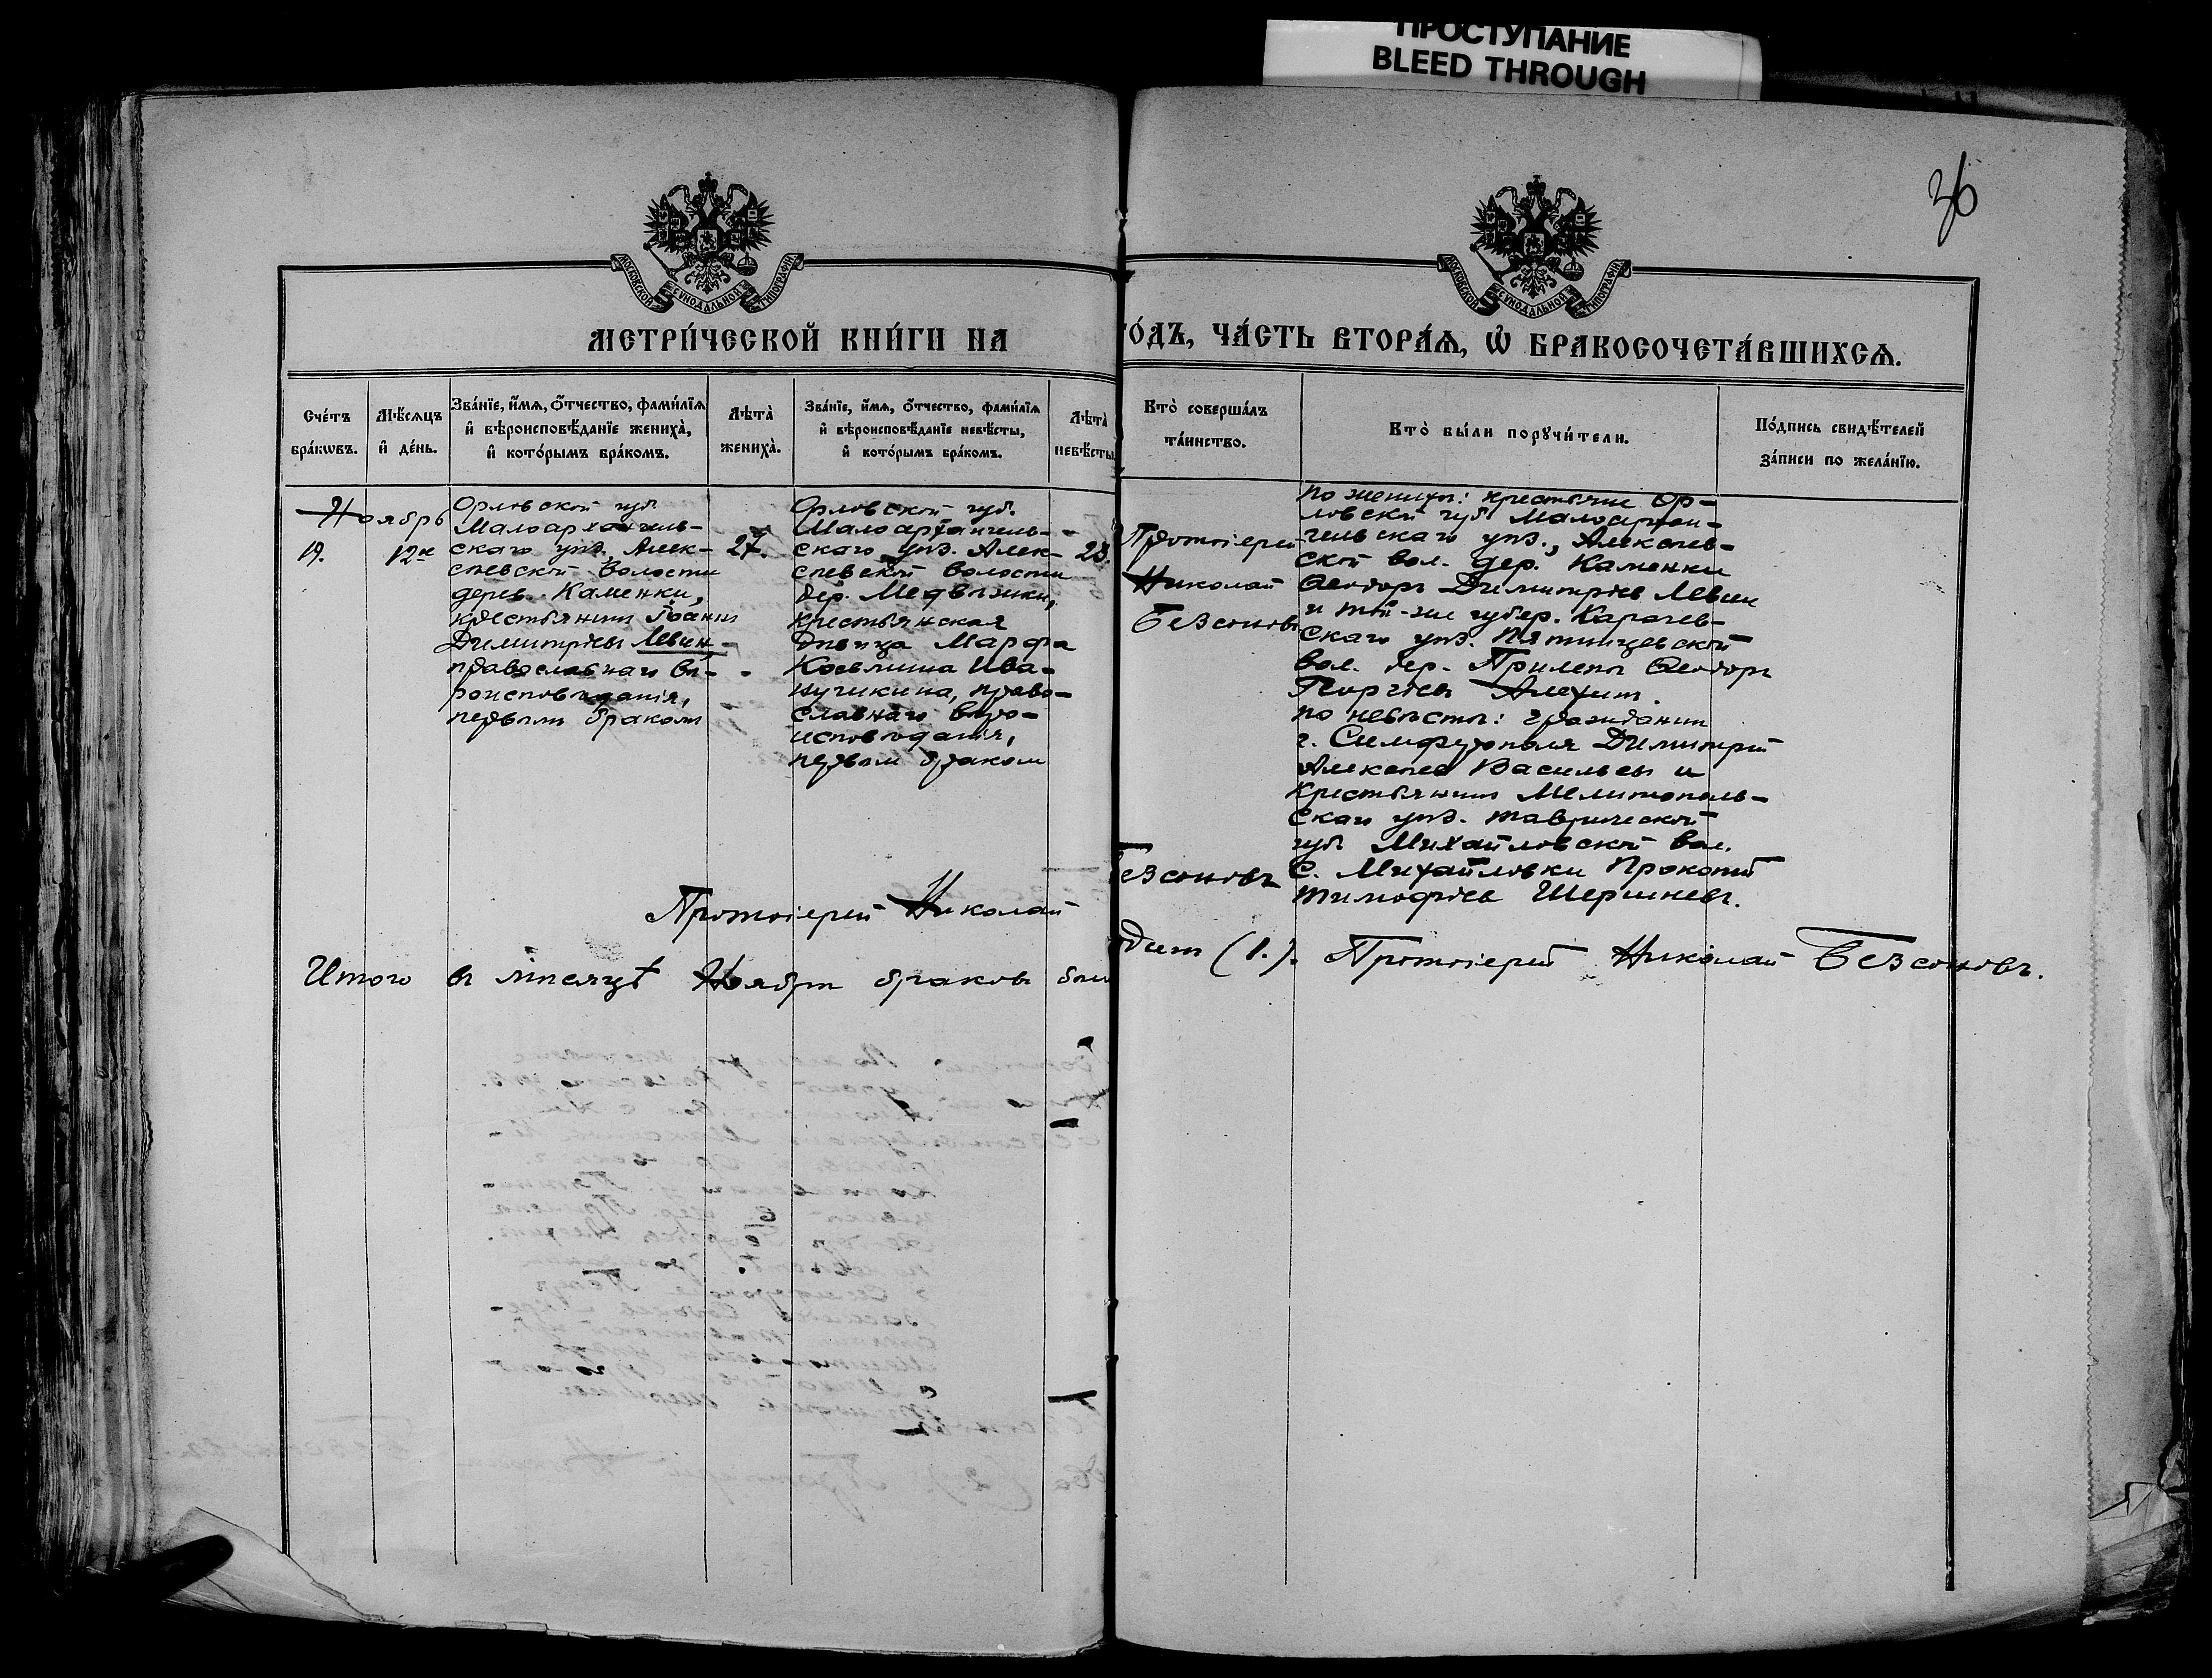 ПРОСТУПАНИЕ
BLEED THROUGH
36
МОСКОВСКОЙ СѴНОДАЛЬНОЙ ТИПОГРАФІИ
МОСКОВСКОЙ СѴНОДАЛЬНОЙ ТИПОГРАФІИ
МЕТРИ́ЧЕСКОЙ КНИ́ГИ НА
ГО́ДЪ, ЧА́СТЬ ВТОРА́Ѧ, Ѽ БРАКОСОЧЕТА́ВШИХСѦ.
Сче́тъ
бра́кѡвъ.
Мѣ́сѧцъ
и҆ де́нь.
Зва́нїе, и҆́мѧ, ѻ҆́тчество, фами́лїѧ
и҆ вѣроисповѣ́данїе жениха̀,
и҆ кото́рымъ бра́комъ.
Лѣта̀
жениха̀.
Зва́нїе, и҆́мѧ, ѻ҆́тчество, фами́лїѧ
и҆ вѣроисповѣ́данїе невѣ́сты,
и҆ кото́рымъ бра́комъ.
Лѣта̀
невѣ́сты
Кто̀ соверша́лъ
та́инство.
Кто̀ бы́ли порꙋчи́тели.
По́дпись свидѣ́телей
за́писи по жела́нїю.
Ноябрь
19.
12го
Орловской губ.
Малоархангель-
скаго уѣз. Алек-
сѣевской волости
дерев. Каменки,
крестьянинъ Іоаннъ
Димитріевъ Левин-
православнаго вѣ-
роисповѣданія,
первымъ бракомъ
27.
Орловской губ.
Малоархангель-
скаго уѣз. Алек-
сѣевской волости
дер. Медвѣжки,
крестьянская
дѣвица Марфа
Косьмина Ива-
нучикина, право-
славнаго вѣро-
исповѣданія,
первым браком
23.
Протоіерей
Николай
Безсоновъ
по женихѣ: крестьяне Ор-
ловской губ. Малоархан-
гельскаго уѣз., Алексѣев-
ской вол. дер. Каменки
Ѳеодоръ Димитріевъ Левин
и той-же губер. Карачев-
скаго уѣз. Пятницевской
вол. дер. Прилепъ Ѳеодоръ
Георгіевъ Алехинъ.
по невѣстѣ: гражданинъ
г. Симферополя Димитрій
Алексѣев Васильевъ и
крестьянинъ Мелитополь-
скаго уѣз. таврической
губ. Михайловской вол.
с. Михайловки Прокопій
Тимофѣев Шершневъ.
Протоіерей Николай
Безсоновъ
Итого въ мѣсяцѣ Ноябрѣ браковъ был
одинъ (1.). Протоіерей Николай Безсоновъ.